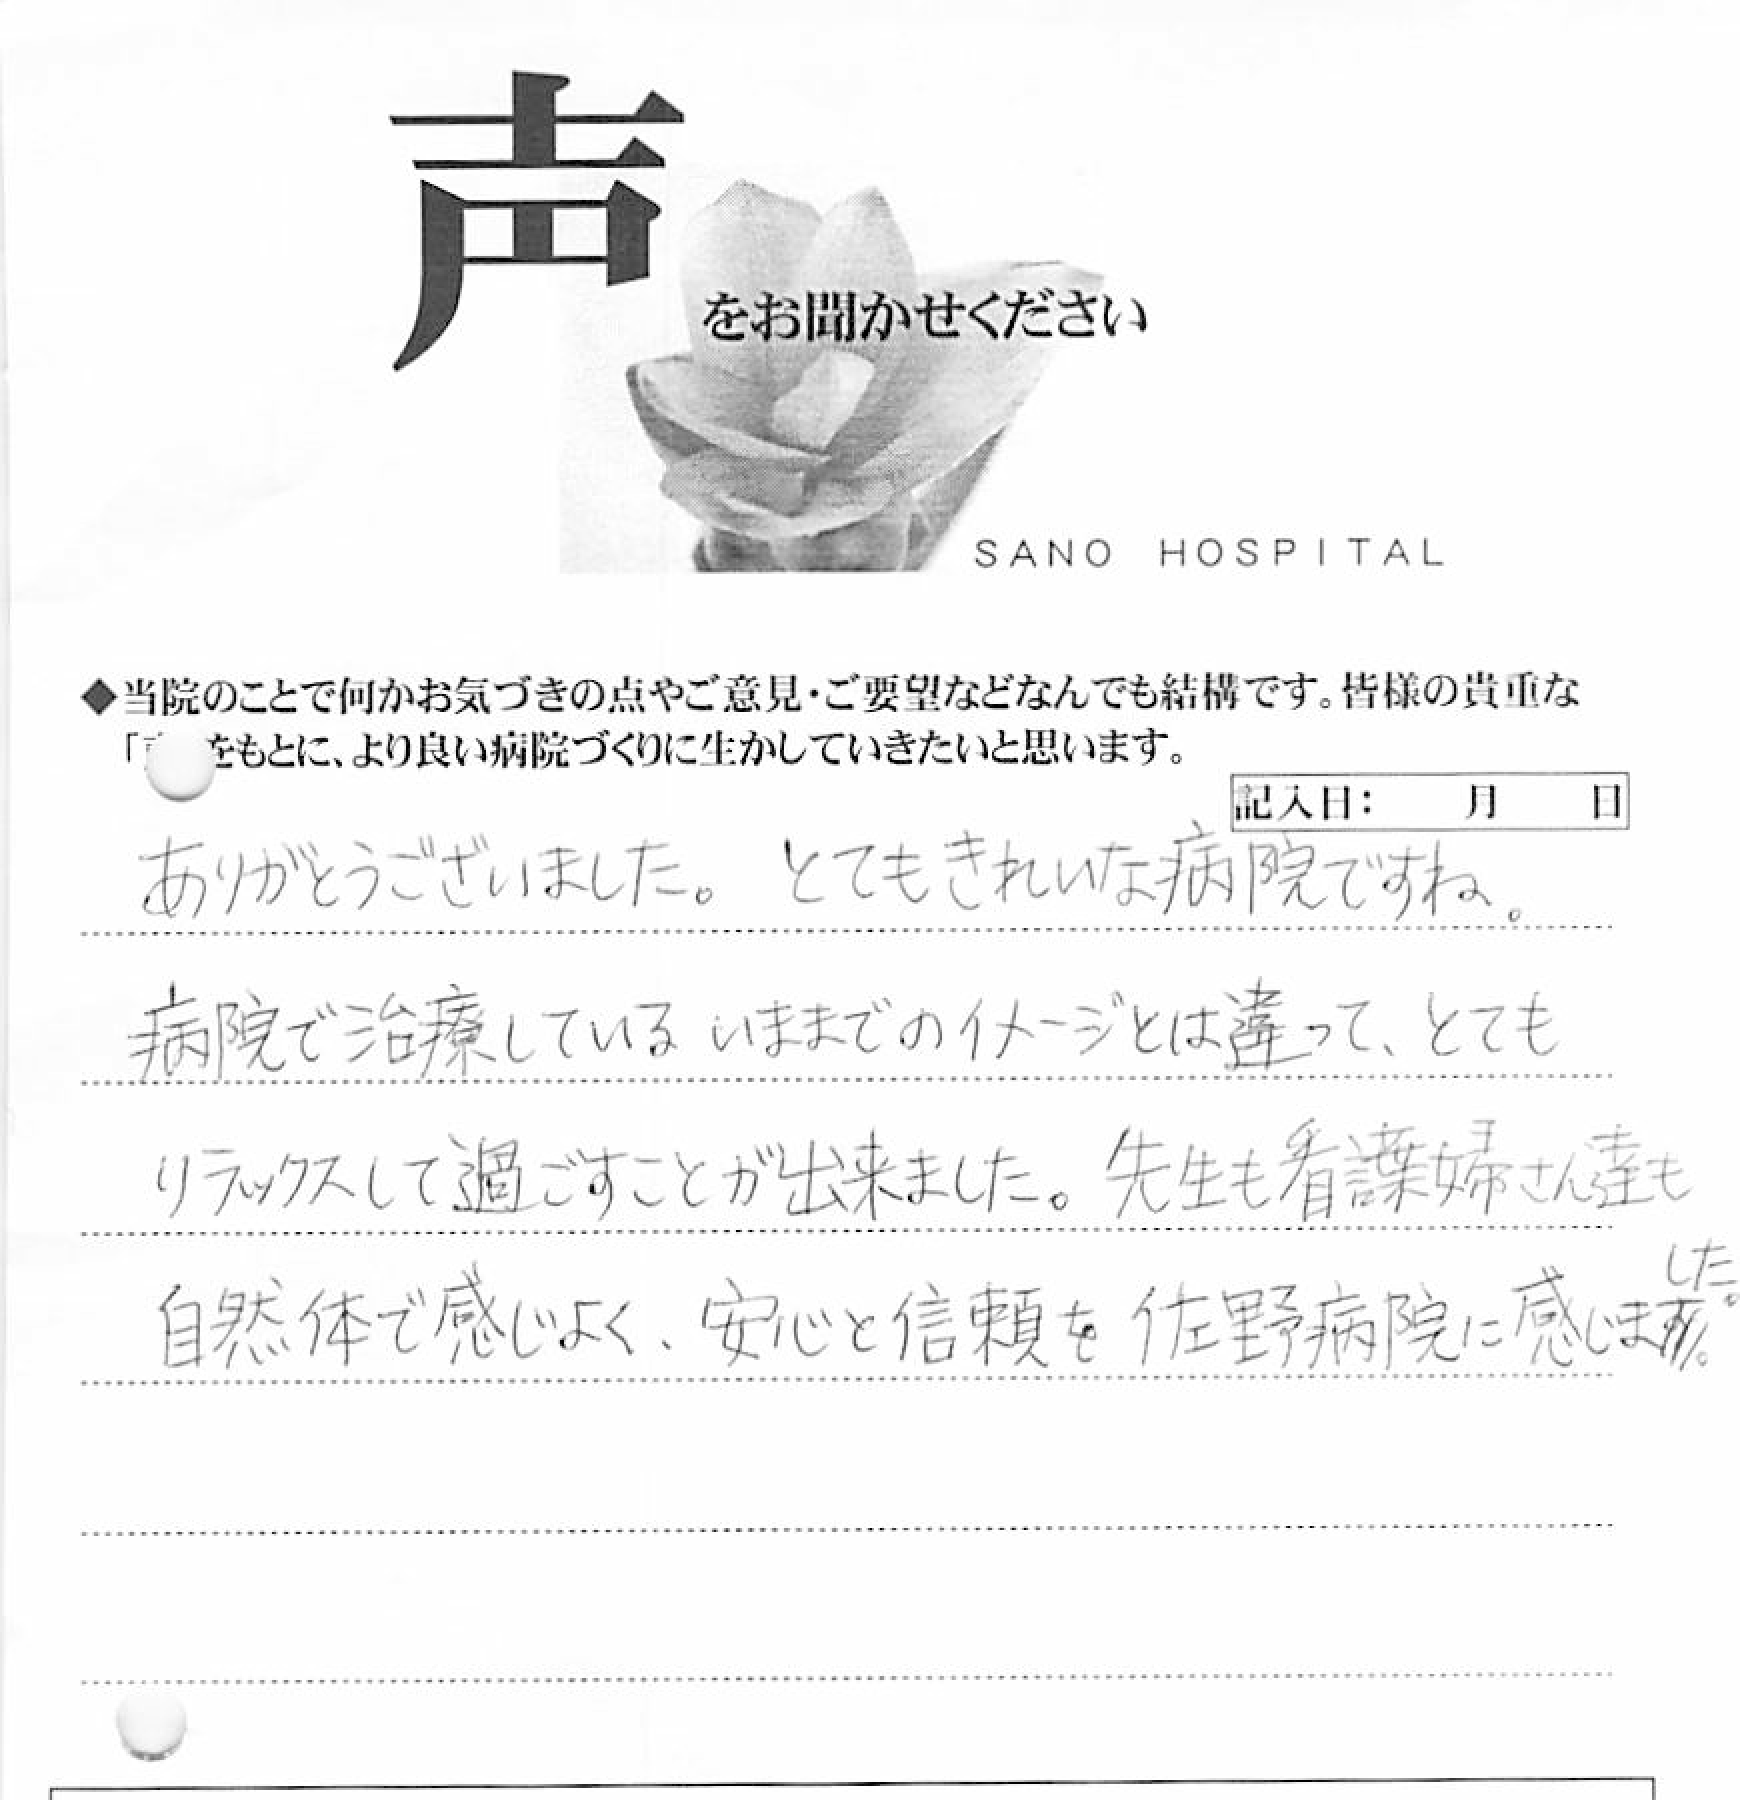 声
をお聞かせください
SANO HOSPITAL
◆当院のことで何かお気づきの点やご意見・ご要望などなんでも結構です。皆様の貴重な
「をもとに、より良い病院づくりに生かしていきたいと思います。
記入日: 月 日
ありがとうございました。 とてもきれいな病院ですね。
病院で治療している いままでのイメージとは違って、とても
リラックスして過ごすことが出来ました。先生も看護婦さん達も
した。
自然体で感じよく、安心と信頼を佐野病院に感じます。